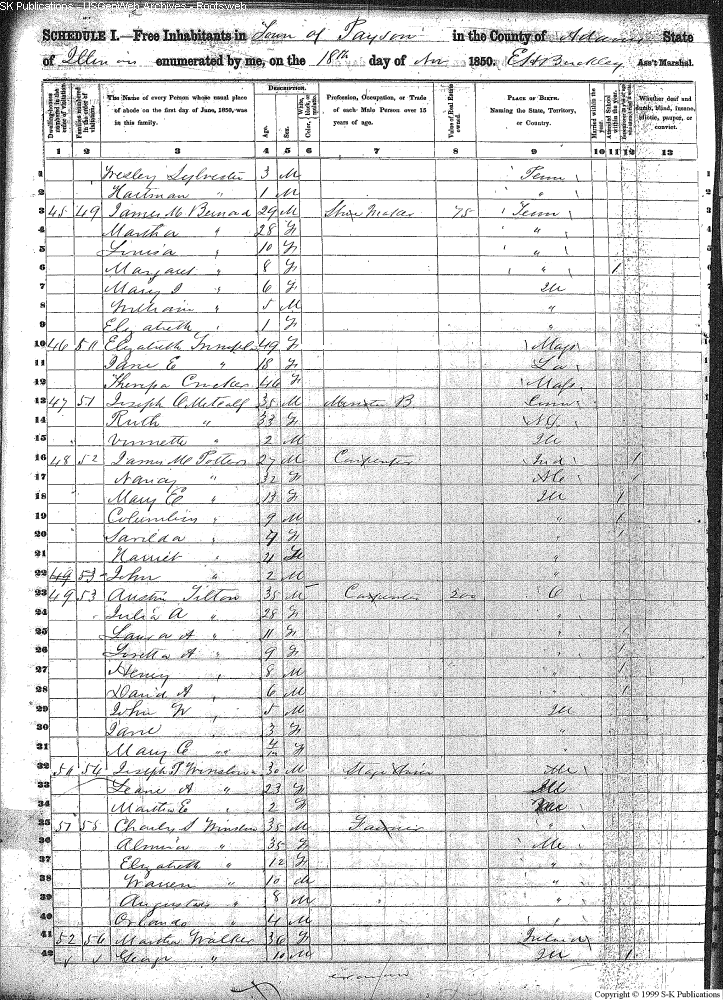 SK Publications - USGenWeb Archives - Rootsweb
SCHEDULE I.—Free Inhabitants in Town of Payson in the County of Adams State
of Illinois enumerated by me, on the 18th day of Nov 1850. Ass't Marshal.
DESCRIPTION.
Dwelling-houses numbered in the order of visitation.
Families numbered in the order of visitation.
The Name of every Person whose usual place of abode on the first day of June, 1850, was in this family.
Age.
Sex.
Profession, Occupation, or Trade of each Male Person over 15 years of age.
Value of Real Estate owned.
PLACE OF BIRTH. Naming the State, Territory, or Country.
Married within the year.
Attended School within the year.
Whether deaf and dumb, blind, insane, idiotic, pauper, or convict.
1 2 3 4 5 6 7 8 9 10 11 12 13
1 Wesley Sylvester 3 M Tenn
2 Hartman " 1 M "
3 45 49 James M Bernard 29 M Shoe Maker 75 Tenn
4 Martha " 28 F "
5 Louisa " 10 F "
6 Margaret " 8 F " 1
7 Mary " 6 F Ill
8 William " 5 M "
9 Elizabeth " 1 F "
10 46 50 Elizabeth 49 F Mass
11 Jane E " 18 F La
12 46 F Mass
13 47 51 Joseph C Metcalf 35 M Minister B Conn
14 Ruth " 33 F NY
15 " 2 M Ill
16 48 52 James M 27 M Carpenter Ind 1
17 Nancy " 32 F 1
18 Mary E " 13 F Ill 1
19 Columbus " 9 M " 1
20 Sarilda " 7 F " 1
21 Harriet " 4 F "
22 49 53 John " 2 M "
23 49 53 Austin Tilton 35 M Carpenter 200 O
24 Julia A " 28 F "
25 Laura A " 11 F " 1
26 Loretta A " 9 F " 1
27 Henry " 8 M " 1
28 David A " 6 M " 1
29 John W " 5 M Ill
30 Jane " 3 F "
31 Mary C " 4/12 F "
32 50 54 Joseph Winslow 30 M Stage Driver Me
33 A " 23 F Ill
34 Martha E " 2 F
35 51 55 Charles S Winslow 35 M Farmer "
36 Almira " 35 F Me
37 Elizabeth " 12 F "
38 Warren " 10 M "
39 Augustus " 8 M "
40 Orlando " 4 M "
41 52 56 Martha Walker 36 F Ireland
42 George " 10 M Ill 1
Copyright © 1999 S-K Publications